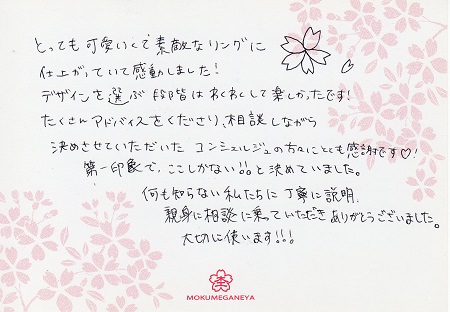 とっても可愛いくて素敵なリングに
仕上がっていて感動しました！
デザインを選ぶ段階はわくわくして楽しかったです！
たくさんアドバイスをくださり、相談しながら
決めさせていただいた コンシェルジュの方々にとても感謝です♡！
第一印象で、ここしかない！！と決めていました。
何も知らない私たちに丁寧に説明、
親身に相談に乗っていただきありがとうございました。
大切に使います！！！
MOKUMEGANEYA